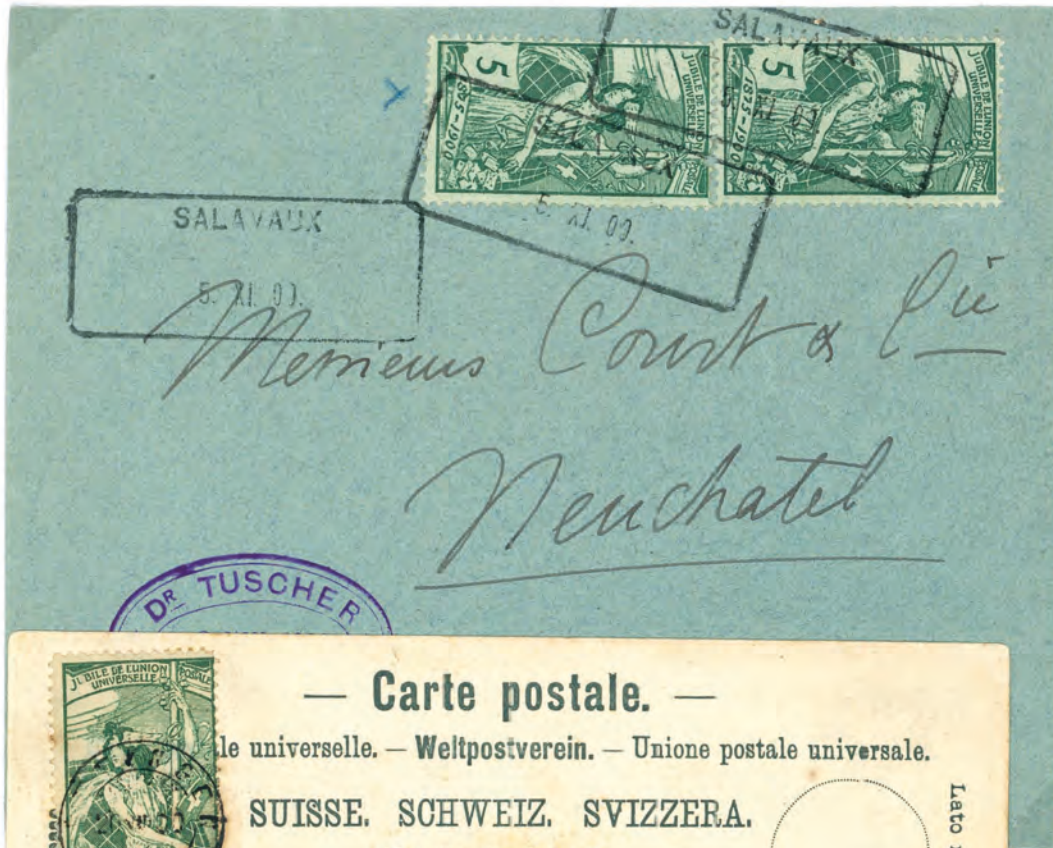 SALAVAUX
5. XI. 00.
5
JUBILÉ DE L'UNION
UNIVERSELLE
POSTALE
1875-1900
5
JUBILÉ DE L'UNION
UNIVERSELLE
POSTALE
1875-1900
SALAVAUX
5. XI. 00.
SALAVAUX
5. XI. 00.
Messieurs Court & Cie
Neuchatel
DR TUSCHER
JUBILÉ DE L'UNION
UNIVERSELLE
POSTALE
— Carte postale. —
le universelle. — Weltpostverein. — Unione postale universale.
SUISSE. SCHWEIZ. SVIZZERA.
Lato